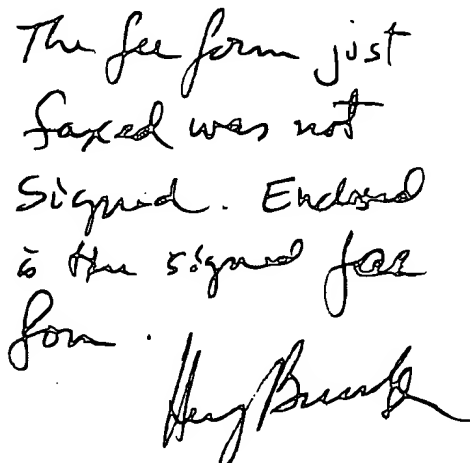 The fee form just
faxed was not
signed. Enclosed
is the signed fee
form.